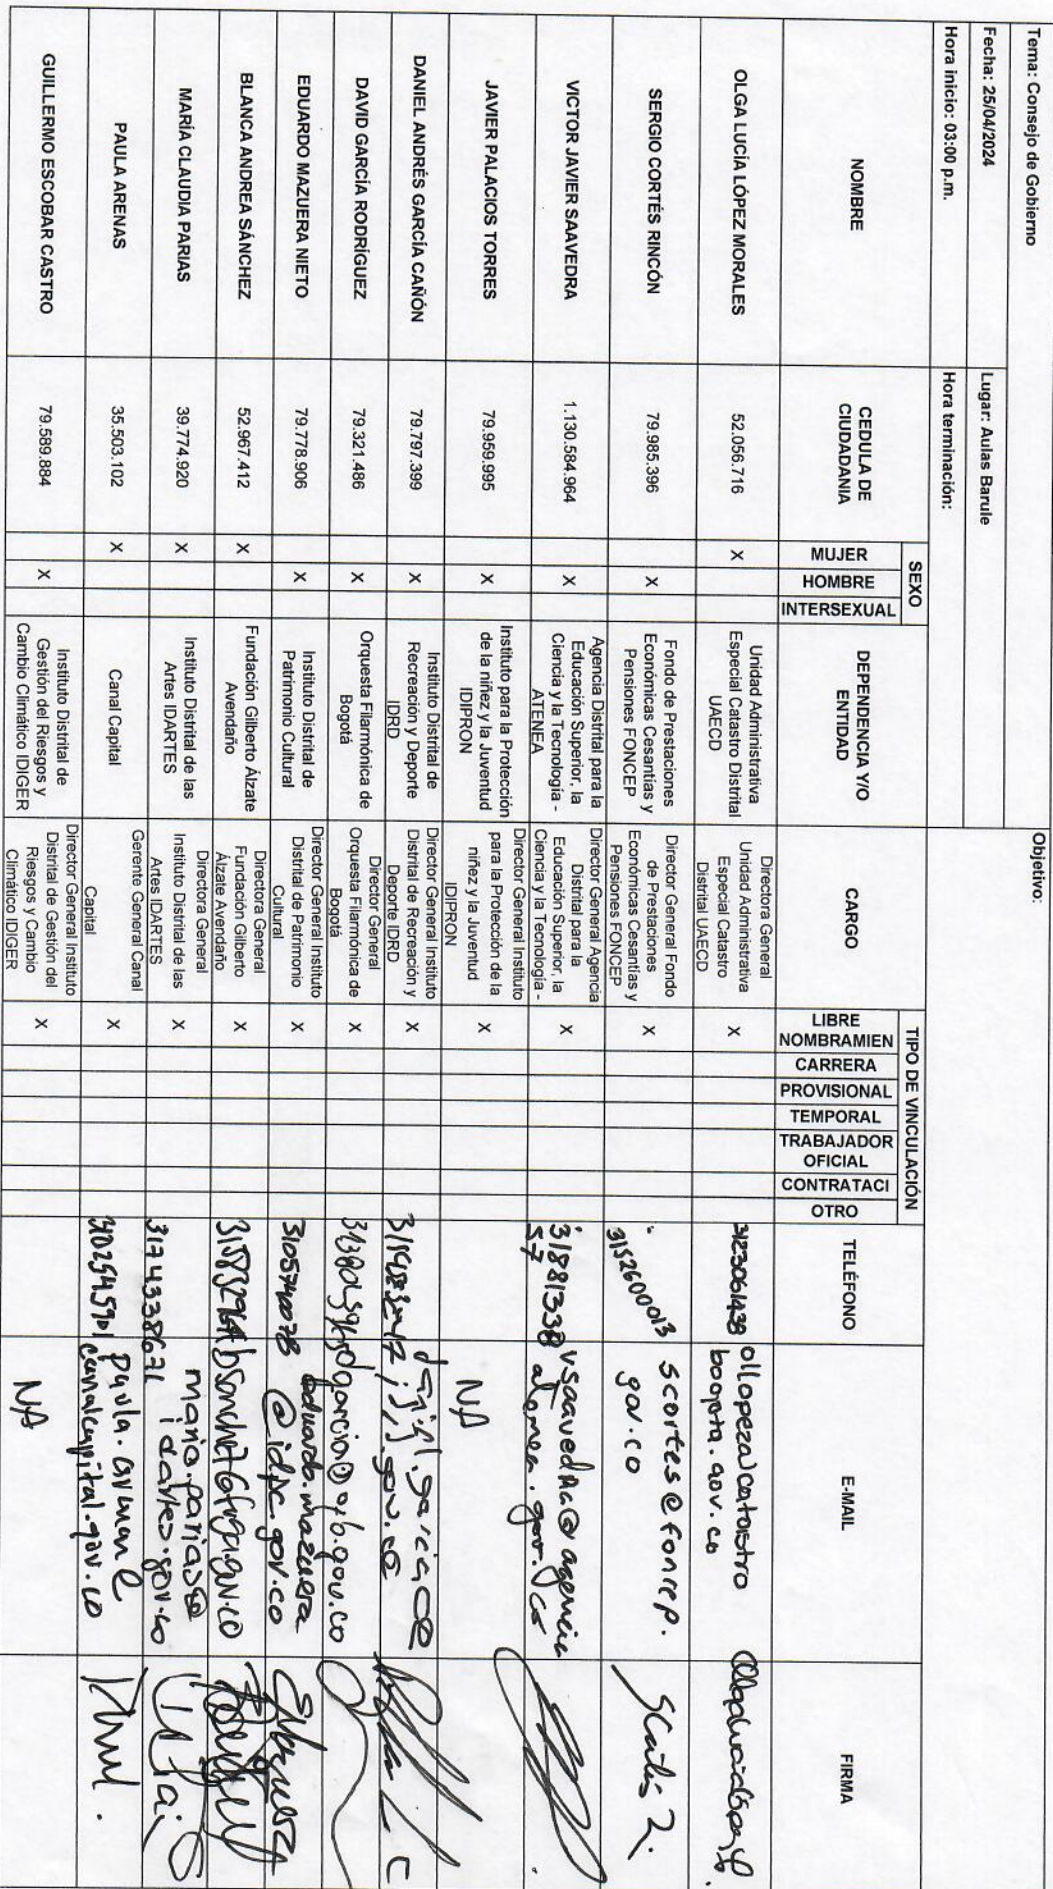 Tema: Consejo de Gobierno
Objetivo:
Fecha: 25/04/2024
Lugar: Aulas Barule
Hora inicio: 03:00 p.m.
Hora terminación:
NOMBRE
CEDULA DE
CIUDADANIA
SEXO
MUJER
HOMBRE
INTERSEXUAL
DEPENDENCIA Y/O
ENTIDAD
CARGO
TIPO DE VINCULACIÓN
LIBRE
NOMBRAMIEN
CARRERA
PROVISIONAL
TEMPORAL
TRABAJADOR
OFICIAL
CONTRATACI
OTRO
TELÉFONO
E-MAIL
FIRMA
OLGA LUCÍA LÓPEZ MORALES
52.056.716
X
Unidad Administrativa
Especial Catastro Distrital
UAECD
Directora General
Unidad Administrativa
Especial Catastro
Distrital UAECD
X
SERGIO CORTÉS RINCÓN
79.985.396
X
Fondo de Prestaciones
Económicas Cesantías y
Pensiones FONCEP
Director General Fondo
de Prestaciones
Económicas Cesantías y
Pensiones FONCEP
X
3152600013
gov.co
VICTOR JAVIER SAAVEDRA
1.130.584.964
X
Agencia Distrital para la
Educación Superior, la
Ciencia y la Tecnología -
ATENEA
Director General Agencia
Distrital para la
Educación Superior, la
Ciencia y la Tecnología -
X
31881338
57
JAVIER PALACIOS TORRES
79.959.995
X
Instituto para la Protección
de la niñez y la Juventud
IDIPRON
Director General Instituto
para la Protección de la
niñez y la Juventud
IDIPRON
X
NA
DANIEL ANDRÉS GARCÍA CAÑÓN
79.797.399
X
Instituto Distrital de
Recreación y Deporte
IDRD
Director General Instituto
Distrital de Recreación y
Deporte IDRD
X
DAVID GARCÍA RODRÍGUEZ
79.321.486
X
Orquesta Filarmónica de
Bogotá
Director General
Orquesta Filarmónica de
Bogotá
X
EDUARDO MAZUERA NIETO
79.778.906
X
Instituto Distrital de
Patrimonio Cultural
Director General Instituto
Distrital de Patrimonio
Cultural
X
eduardo.mazuera
@idpc.gov.co
BLANCA ANDREA SÁNCHEZ
52.967.412
X
Fundación Gilberto Álzate
Avendaño
Directora General
Fundación Gilberto
Álzate Avendaño
X
MARÍA CLAUDIA PARIAS
39.774.920
X
Instituto Distrital de las
Artes IDARTES
Directora General
Instituto Distrital de las
Artes IDARTES
X
3174338671
maria.parias@
idartes.gov.co
PAULA ARENAS
35.503.102
X
Canal Capital
Gerente General Canal
Capital
X
3102545901
canalcapital.gov.co
GUILLERMO ESCOBAR CASTRO
79.589.884
X
Instituto Distrital de
Gestión del Riesgos y
Cambio Climático IDIGER
Director General Instituto
Distrital de Gestión del
Riesgos y Cambio
Climático IDIGER
X
NA